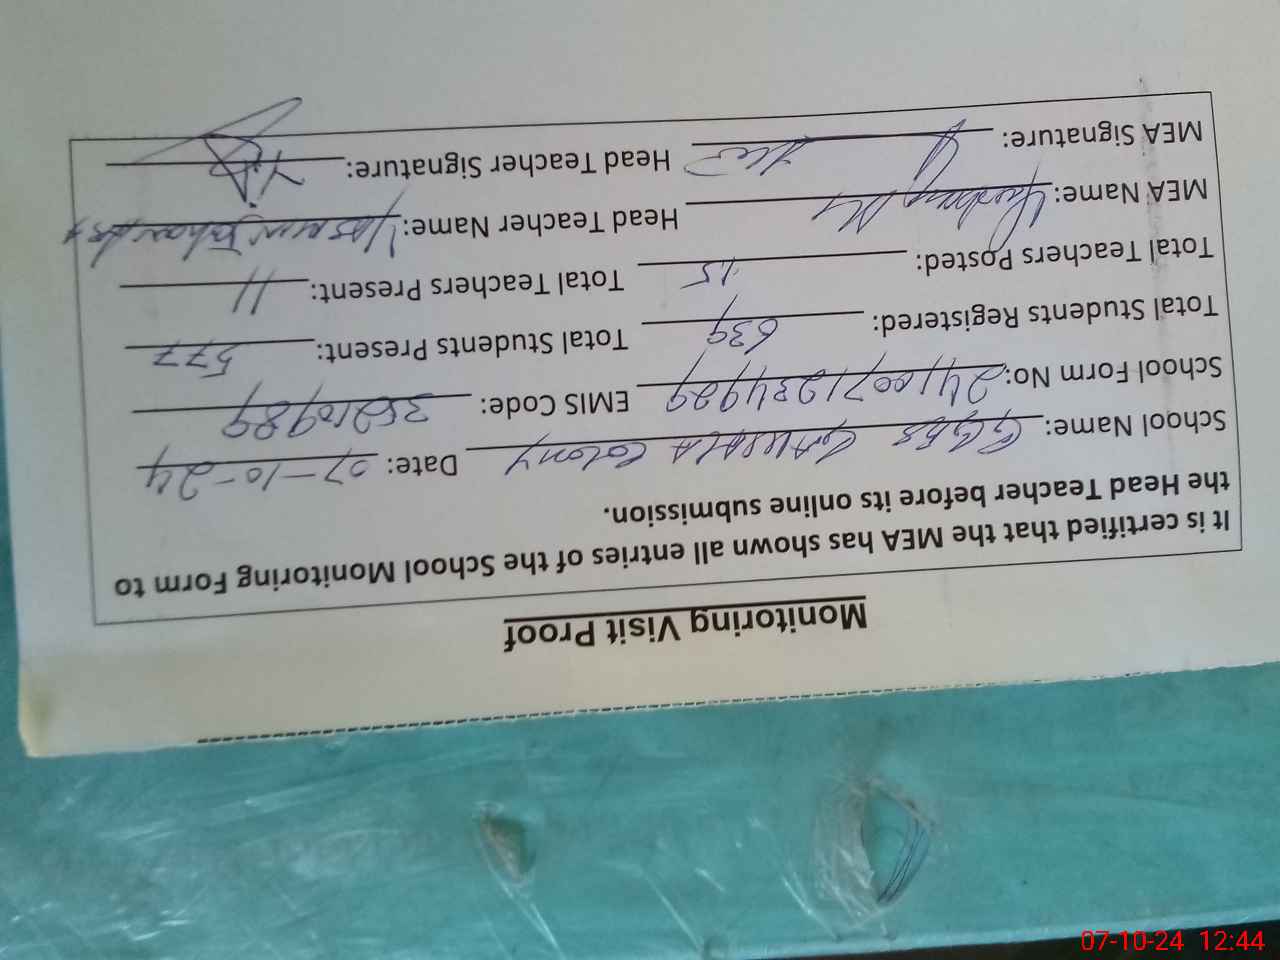 Monitoring Visit Proof
It is certified that the MEA has shown all entries of the School Monitoring Form to
the Head Teacher before its online submission.
School Name: GGES Colony Date: 07-10-24
School Form No: 2410071234929 EMIS Code: 35210989
Total Students Registered: 639 Total Students Present: 577
Total Teachers Posted: 15 Total Teachers Present: 11
MEA Name: Head Teacher Name:
MEA Signature: Head Teacher Signature:
07-10-24 12:44